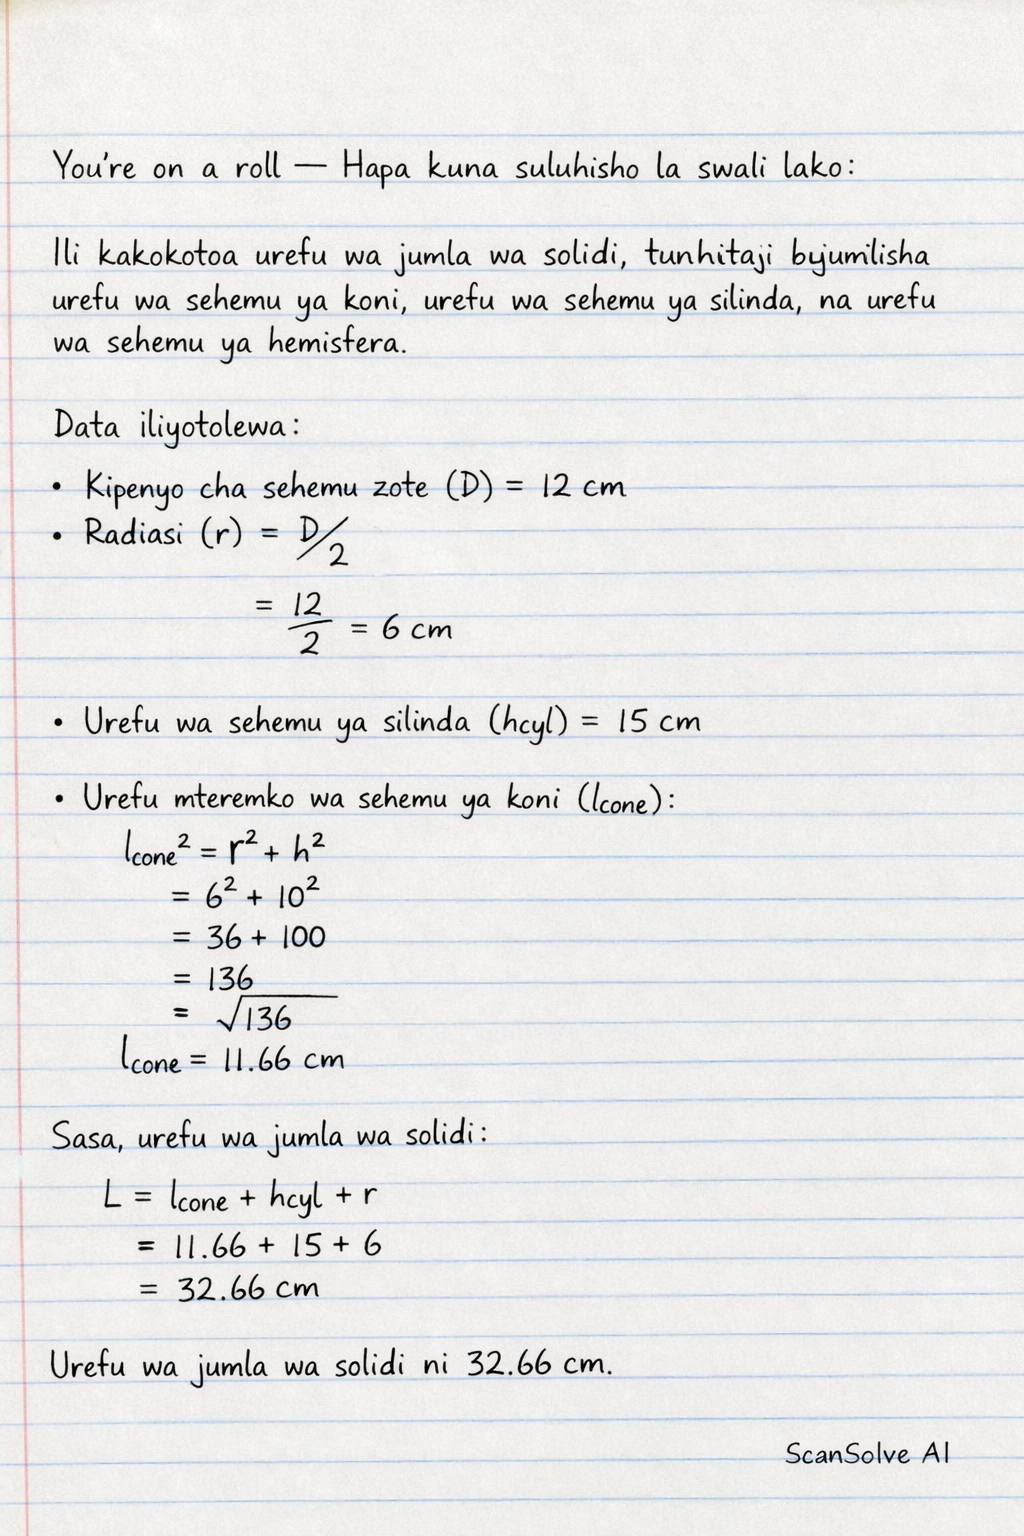 You're on a roll — Hapa kuna suluhisho la swali lako:
Ili kakokotoa urefu wa jumla wa solidi, tunhitaji bjumilisha
urefu wa sehemu ya koni, urefu wa sehemu ya silinda, na urefu
wa sehemu ya hemisfera.
Data iliyotolewa:
• Kipenyo cha sehemu zote (D) = 12 cm
• Radiasi (r) = D/2
= 12/2 = 6 cm
• Urefu wa sehemu ya silinda (hcyl) = 15 cm
• Urefu mteremko wa sehemu ya koni (lcone):
lcone² = r² + h²
= 6² + 10²
= 36 + 100
= 136
= √136
lcone = 11.66 cm
Sasa, urefu wa jumla wa solidi:
L = lcone + hcyl + r
= 11.66 + 15 + 6
= 32.66 cm
Urefu wa jumla wa solidi ni 32.66 cm.
ScanSolve AI